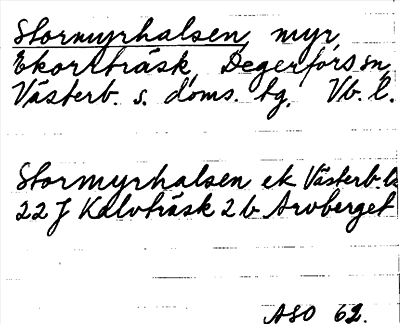 Stormyrhalsen, myr
Ekorrträsk, Degerfors sn,
Västerb. s. doms. tg, Vb. l.
Stormyrhalsen ek Västerb. l
22 J Kalvträsk 2 b Arvberget
ASO 62.